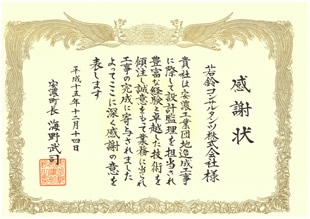 感謝状
若鈴コンサルタンツ株式会社様
貴社は安濃工業団地造成工事
に際して設計監理を担当され
豊富な経験と卓越した技術を
傾注し誠意をもって業務に当られ
工事の完成に寄与されました
よってここに深く感謝の意を
表します
平成十五年十二月十四日
安濃町長 海野武司